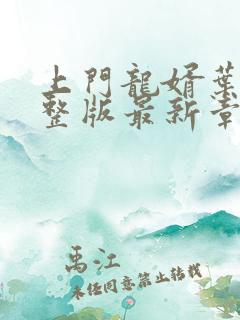 上門龍婿葉
整版最新章
禹江
未經同意禁止转載